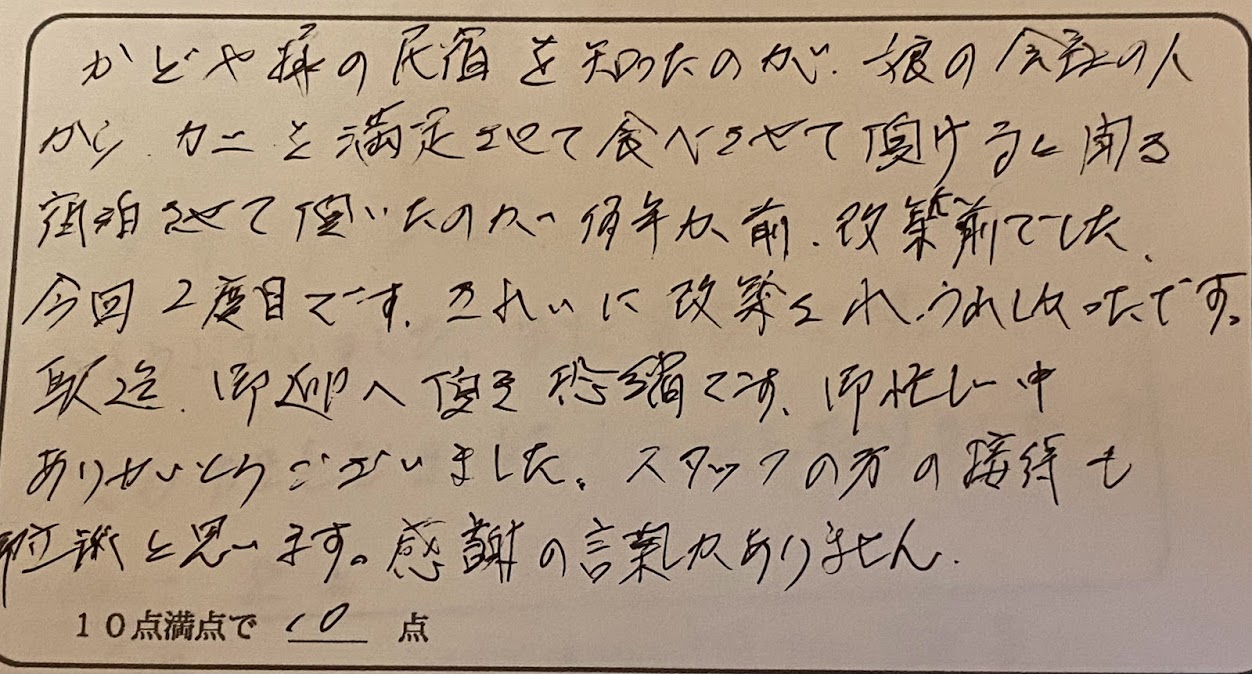 かどや様の民宿を知ったのが、娘の会社の人
から、カニを満足させて食べさせて頂けると聞き
宿泊させて頂いたのが何年か前、改築前でした。
今回2度目です。きれいに改築され、うれしかったです。
駅迄、御迎へ頂き恐縮です、御忙し中
ありがとうございました。スタッフの方の接待も
と思います。感謝の言葉がありません。
10点満点で 10 点